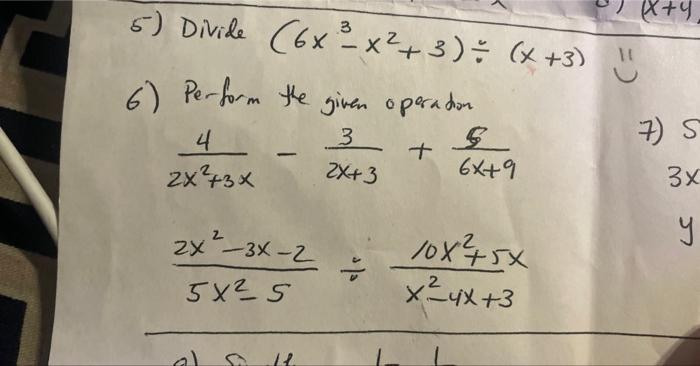 (x+4
5) Divide (6x³ - x² + 3) ÷ (x + 3)
6) Perform the given operation
4/(2x²+3x) - 3/(2x+3) + 5/(6x+9)
7) S
3x
y
(2x²-3x-2)/(5x²-5) ÷ (10x²+5x)/(x²-4x+3)